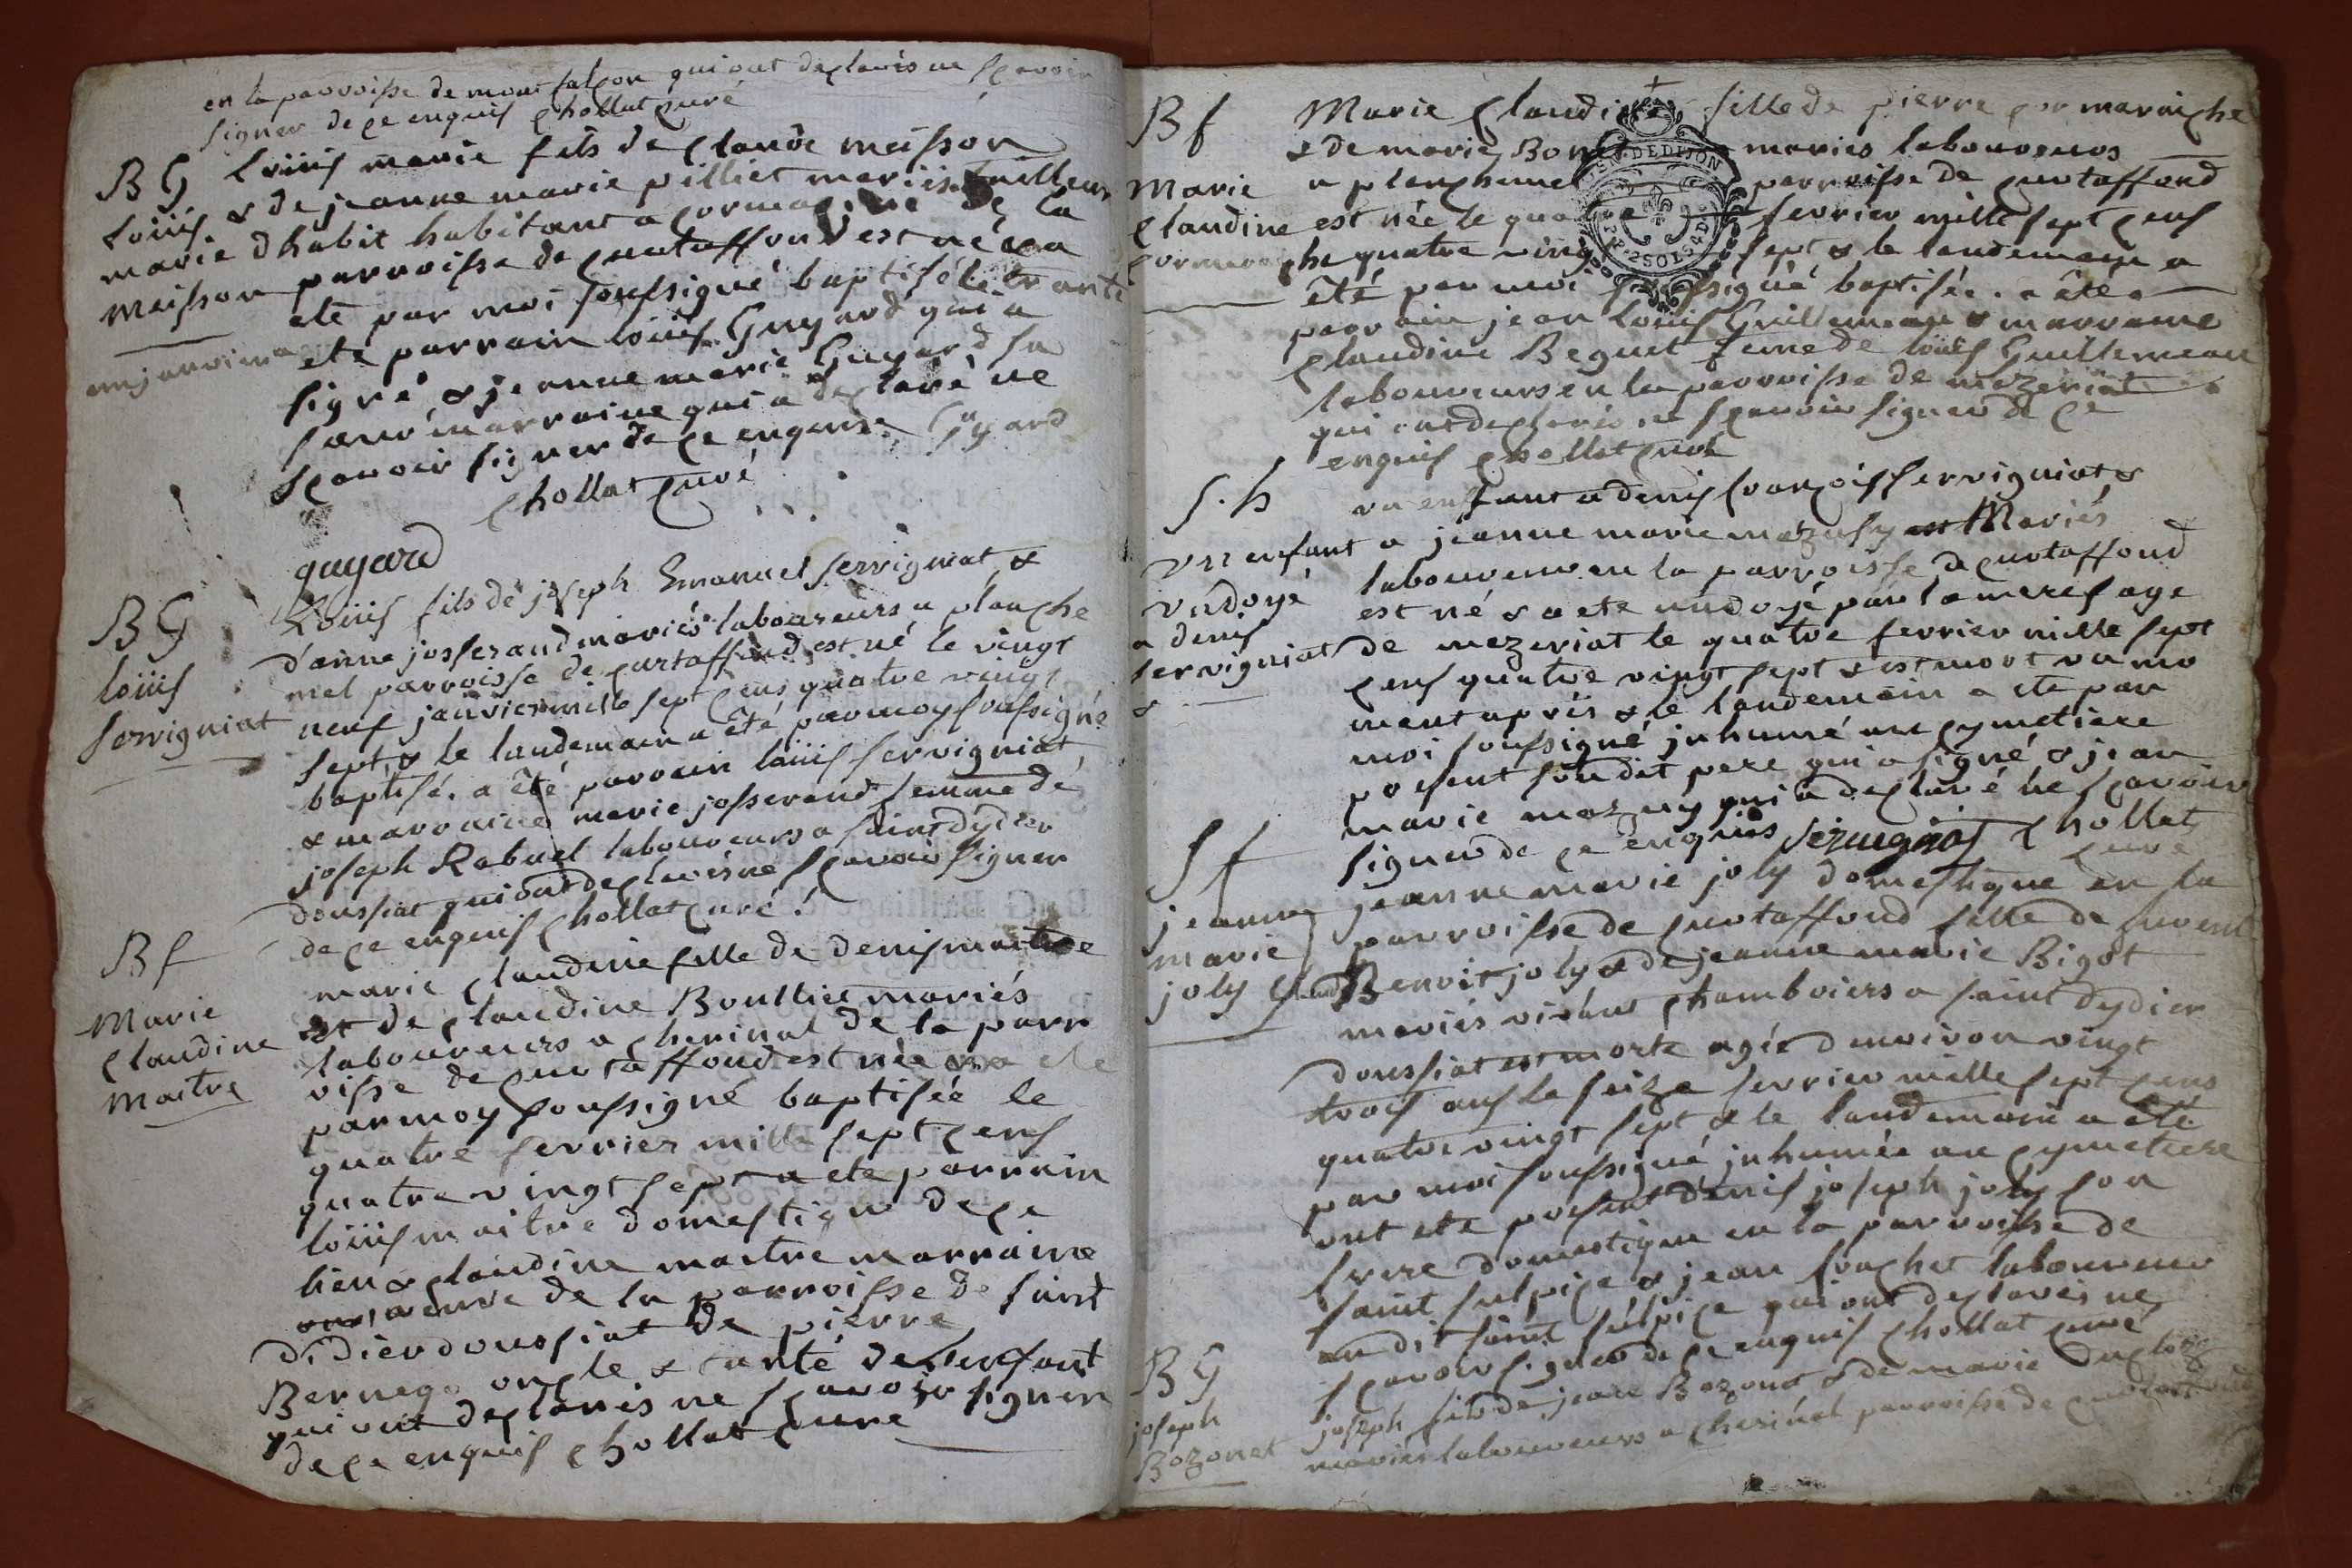 en la parroisse de montfalcon qui ont declarés ne scavoir
signer de ce enquis chollat curé
B G
Loüis
marie
Meisson
Loüis marie fils de claude meisson
& de jeanne marie pilliet mariés tailleur
d habit habitant a
parroisse de curtaffond est né & a
eté par moi soussigné baptisé le trante
eté parrain loüis Guyard qui a
signé & jeanne marie Guyard sa
sœur marraine qui a declaré ne
scavoir signer de ce enquise Gyard
chollat curé
guyard
B G
loüis
servigniat
Loüis fils de joseph Emanuel servigniat &
d'anne josserand mariés laboureurs a planche
mel parroisse de curtaffond est né le vingt
neuf janvier mille sept cens quatre vingt
sept & le landemain a été par moy soussigné
baptisé. a été parrain loüis servigniat
& marraine marie josserand femme de
joseph Rabuel laboureurs a saint dydier
doussiat qui ont declarés ne scavoir signer
de ce enquis chollat curé.
B f
Marie
claudine
maitre
marie claudine fille de denis maitre
et de claudine Boullier mariés
laboureurs a cherinal de la parr
oisse de curtaffond est née & a eté
par moy soussigné baptisée le
quatre fevrier mille sept cens
quatre vingt sept a eté parrain
loüis maitre domestique de ce
lieu & claudine maitre marraine
veuve de la parroisse de saint
didier doussiat de pierre
oncle & tante de l'enfant
qui ont declarés ne scavoir signer
de ce enquis chollat curé
B f
Marie
claudine
cormaraiche
Marie claudine fille de pierre cormaraiche
& de marie Bonet mariés laboureurs
a plenchemel parroisse de curtaffond
est née le quatre fevrier mille sept cens
quatre vingt sept & le landemain a
été par moi soussigné baptisée. a été
parrain jean loüis Guillemeau & marraine
claudine Beguet feme de loüis Guillemeau
laboureurs en la parroisse de mezeriat
qui ont declarés ne scavoir signer de ce
enquis chollat curé
S. h
un enfant
undoyé
a denis
servigniat
&
un enfant a denis françois servigniat &
a jeanne marie mazuy est Mariés
laboureur en la parroisse de curtaffond
est né & a eté undoyé par la mere sage
de mezeriat le quatre fevrier mille sept
cens quatre vingt sept & est mort un mo
ment aprés & le landemain a eté par
moi soussigné inhumé au cymetiere
present son dit pere qui a signé & jean
marie mazuy qui a declaré ne scavoir
signer de ce enquis servigniat chollat
curé
S f
jeanne
marie
joly
jeanne marie joly domestique en la
parroisse de curtaffond fille de
Benoit joly & de jeanne marie Bigot
mariés vivans chambriers a saint dydier
doussiat est morte agée d environ vingt
trois ans le seize fevrier mille sept cens
quatre vingt sept & le landemain a été
par moi soussigné inhumée au cymetiere
ont eté present denis joseph joly son
frere domestique en la parroisse de
saint sulpice & jean laboureur
au dit saint sulpice qui ont declarés ne
scavoir signer de ce enquis chollat curé
B G
joseph
Bozonet
joseph fils de jean Bozonet & de marie
mariés laboureurs a cherinal parroisse de curtaffond